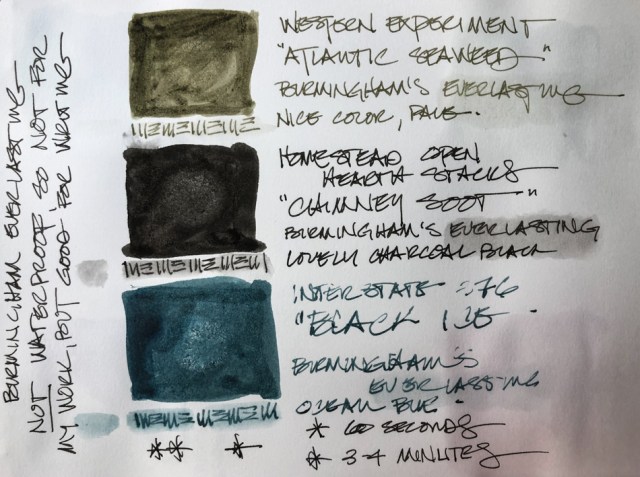 BURMINGHAM EVERLASTING
NOT WATERPROOF SO NOT FOR
MY WORK, BUT GOOD FOR WRITING
WESTERN EXPERIMENT
"ATLANTIC SEAWEED"
BURMINGHAM'S EVERLASTING
NICE COLOR, PALE.
HOMESTEAD OPEN
HEARTH STACKS
"CHIMNEY SOOT"
BURMINGHAM'S EVERLASTING
LOVELY CHARCOAL BLACK
INTERSTATE 376
"BLACK ICE"
BURMINGHAM'S
EVERLASTING
OCEAN BLUE.
* 60 SECONDS
* 3-4 MINUTES
** *